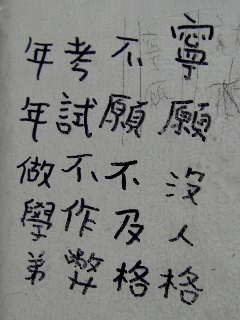 寧願沒人格
不願不及格
考試不作弊
年年做學弟